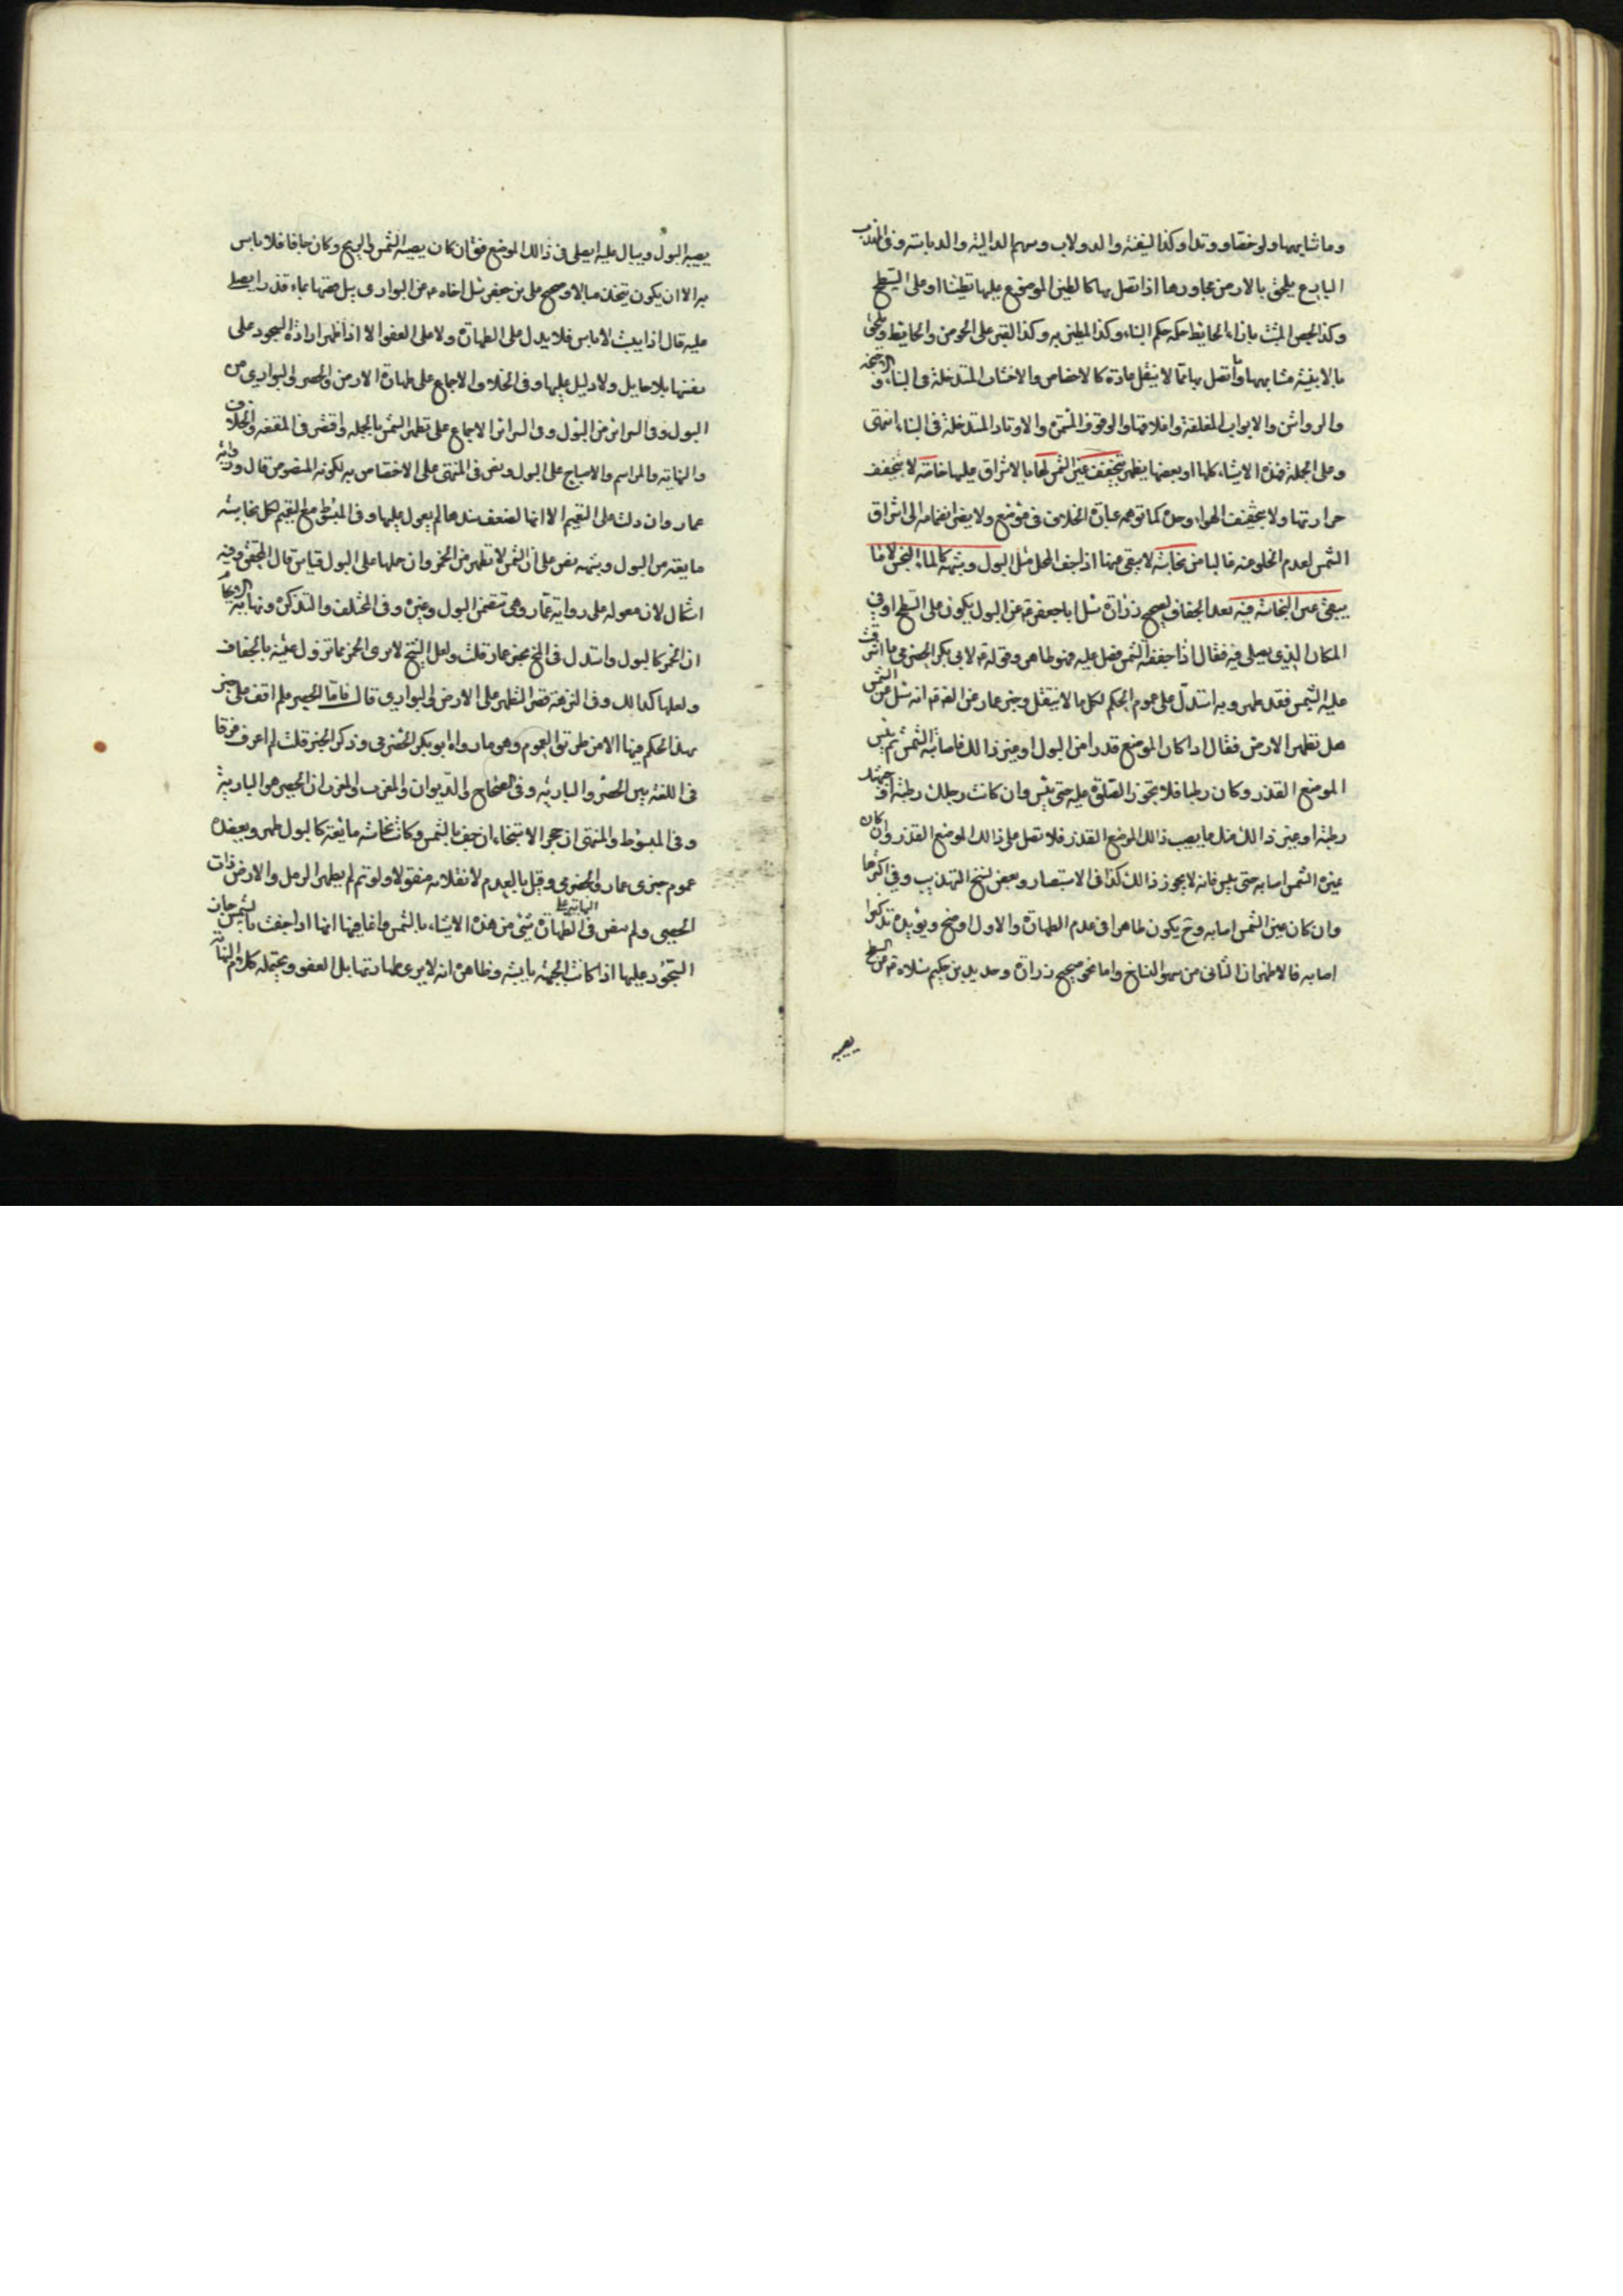 وما شابهها ولو خصا و وتدا وكذا السفينة والدولاب وسهم الدالية والدباسة وفي المهذب
البارع يلحق بالارض مجاورها اذا اتصل بها كالطين الموضوع عليها تطينا او على السطح
وكذا الجص المثبت بازاء الحايط حكمه حكم البناء وكذا المطين به وكذا القير على الحوض والحايط ويلحق
بالابنية مشابهها وما اتصل بها مما لا ينقل عادة كالاخصاص والاخشاب المتداخلة في البناء و الاجنحة
والرواشن والابواب المغلقة واغلاقها والرفوف المثبتة والاوتاد المتداخلة في البناء انتهى
وعلى الجملة فهذه الاشياء كلها او بعضها يطهر بتجفيف عين الشمس لها بالاشراق عليها خاصة لا بتجفيف
حرارتها ولا بتجفيف الهواء وحده كما توهمه عبارة الخلاف في موضع ولا يضر انضمامه الى اشراق
الشمس لعدم الخلو عنه غالبا من نجاسة لا يبقى عينها اذا جف المحل مثل البول وشبهه كالماء النجس لا ما
يبقى عين النجاسة فيه بعد الجفاف لصحيح زرارة سئل ابا جعفر ع عن البول يكون على السطح او في
المكان الذي يصلى فيه فقال اذا جففته الشمس فصل عليه فهو طاهر وقوله ع لابي بكر الحضرمي ما اشرقت
عليه الشمس فقد طهر وبه استدل على عموم الحكم لكل ما لا ينتقل وخبر عمار عن الصادق ع انه سئل عن الشمس
هل تطهر الارض فقال اذا كان الموضع قذرا من البول او غير ذالك فاصابته الشمس ثم يبس
الموضع القذر وكان رطبا فلا تجوز الصلوة عليه حتى ييبس وان كانت رجلك رطبة او جبهتك
رطبة او غير ذالك منك ما يصيب ذالك الموضع القذر فلا تصل على ذالك الموضع القذر وان كان
غير الشمس اصابه حتى يبس فانه لا يجوز ذالك كذا في الاستبصار وبعض نسخ التهذيب وفي اكثرها
وان كان عين الشمس اصابه وح يكون ظاهرا في عدم الطهارة والاول اوضح ويؤيده تذكير
اصابه فالاظهر ان الثاني من سهو النساخ واما نحو صحيح زرارة وحديد بن حكيم سئلاه ع عن السطح
يصيبه
يصيبه البول ويبال عليه ايصلى في ذالك الموضع فقال ان كان يصيبه الشمس والريح وكان جافا فلا باس
به الا ان يكون يتخذ مبالا وصحيح علي بن جعفر سئل اخاه ع عن البواري يبل قصبها بماء قذر ايصلى
عليه قال اذا يبست لا باس فلا يدل على الطهارة ولا على العفو الا اذا ظهر ارادة السجود على
نفسها بلا حايل ولا دليل عليها وفي الخلاف الاجماع على طهارة الارض والحصر والبواري من
البول وفي السرائر من البول وفي السرائر الاجماع على تطهر الشمس بالجملة واقتصر في المقنعة والخلاف
والنهاية والمراسم والاصباح على البول ونص في المنتهى على الاختصاص به لكونه المنصوص قال ورواية
عمار وان دلت على التعميم الا انها لضعف سندها لم يعول عليها وفي المبسوط مع التعميم لكل نجاسة
مايعة من البول وشبهه نص على ان الشمس لا تطهر من الخمر وان حملها على البول قياس قال المحقق وفيه
اشكال لان معوله على رواية عمار وهي تتضمن البول وغيره وفي المختلف والتذكرة ونهاية الاحكام
ان الخمر كالبول واستدل في المخ بخبر عمار قلت ولعل الشيخ لا يرى الخمر مما تزول عينه بالجفاف
ولعلها كذالك وفي النزهة قصر التطهر على الارض والبواري قال فاما الحصير فلم اقف على خبر
بهذا الحكم فيها الا من طريق العموم وهو ما رواه ابو بكر الحضرمي وذكر الخبر قلت لم اعرف فرقا
في اللغة بين الحصر والبارية وفي الصحاح والديوان والمغرب والمعرب ان الحصير هو البارية
وفي المبسوط والمنتهى ان حجر الاستنجاء ان جف بالشمس وكانت نجاسة مايعة كالبول طهر ويعضده
عموم خبري عمار والحضرمي وقيل بالعدم لانتقلابه منقولا ولو تم لم يطهر الرمل والارض ذات
الحصى ولم ينص في النهاية على الطهارة شئ من هذه الاشياء بالشمس وانما فيها انها اذا جفت بالشمس جاز
السجود عليها اذا كانت الجبهة يابسة وظاهره انه لا يرى طهارتها بل العفو ويحتمله كلام النهاية